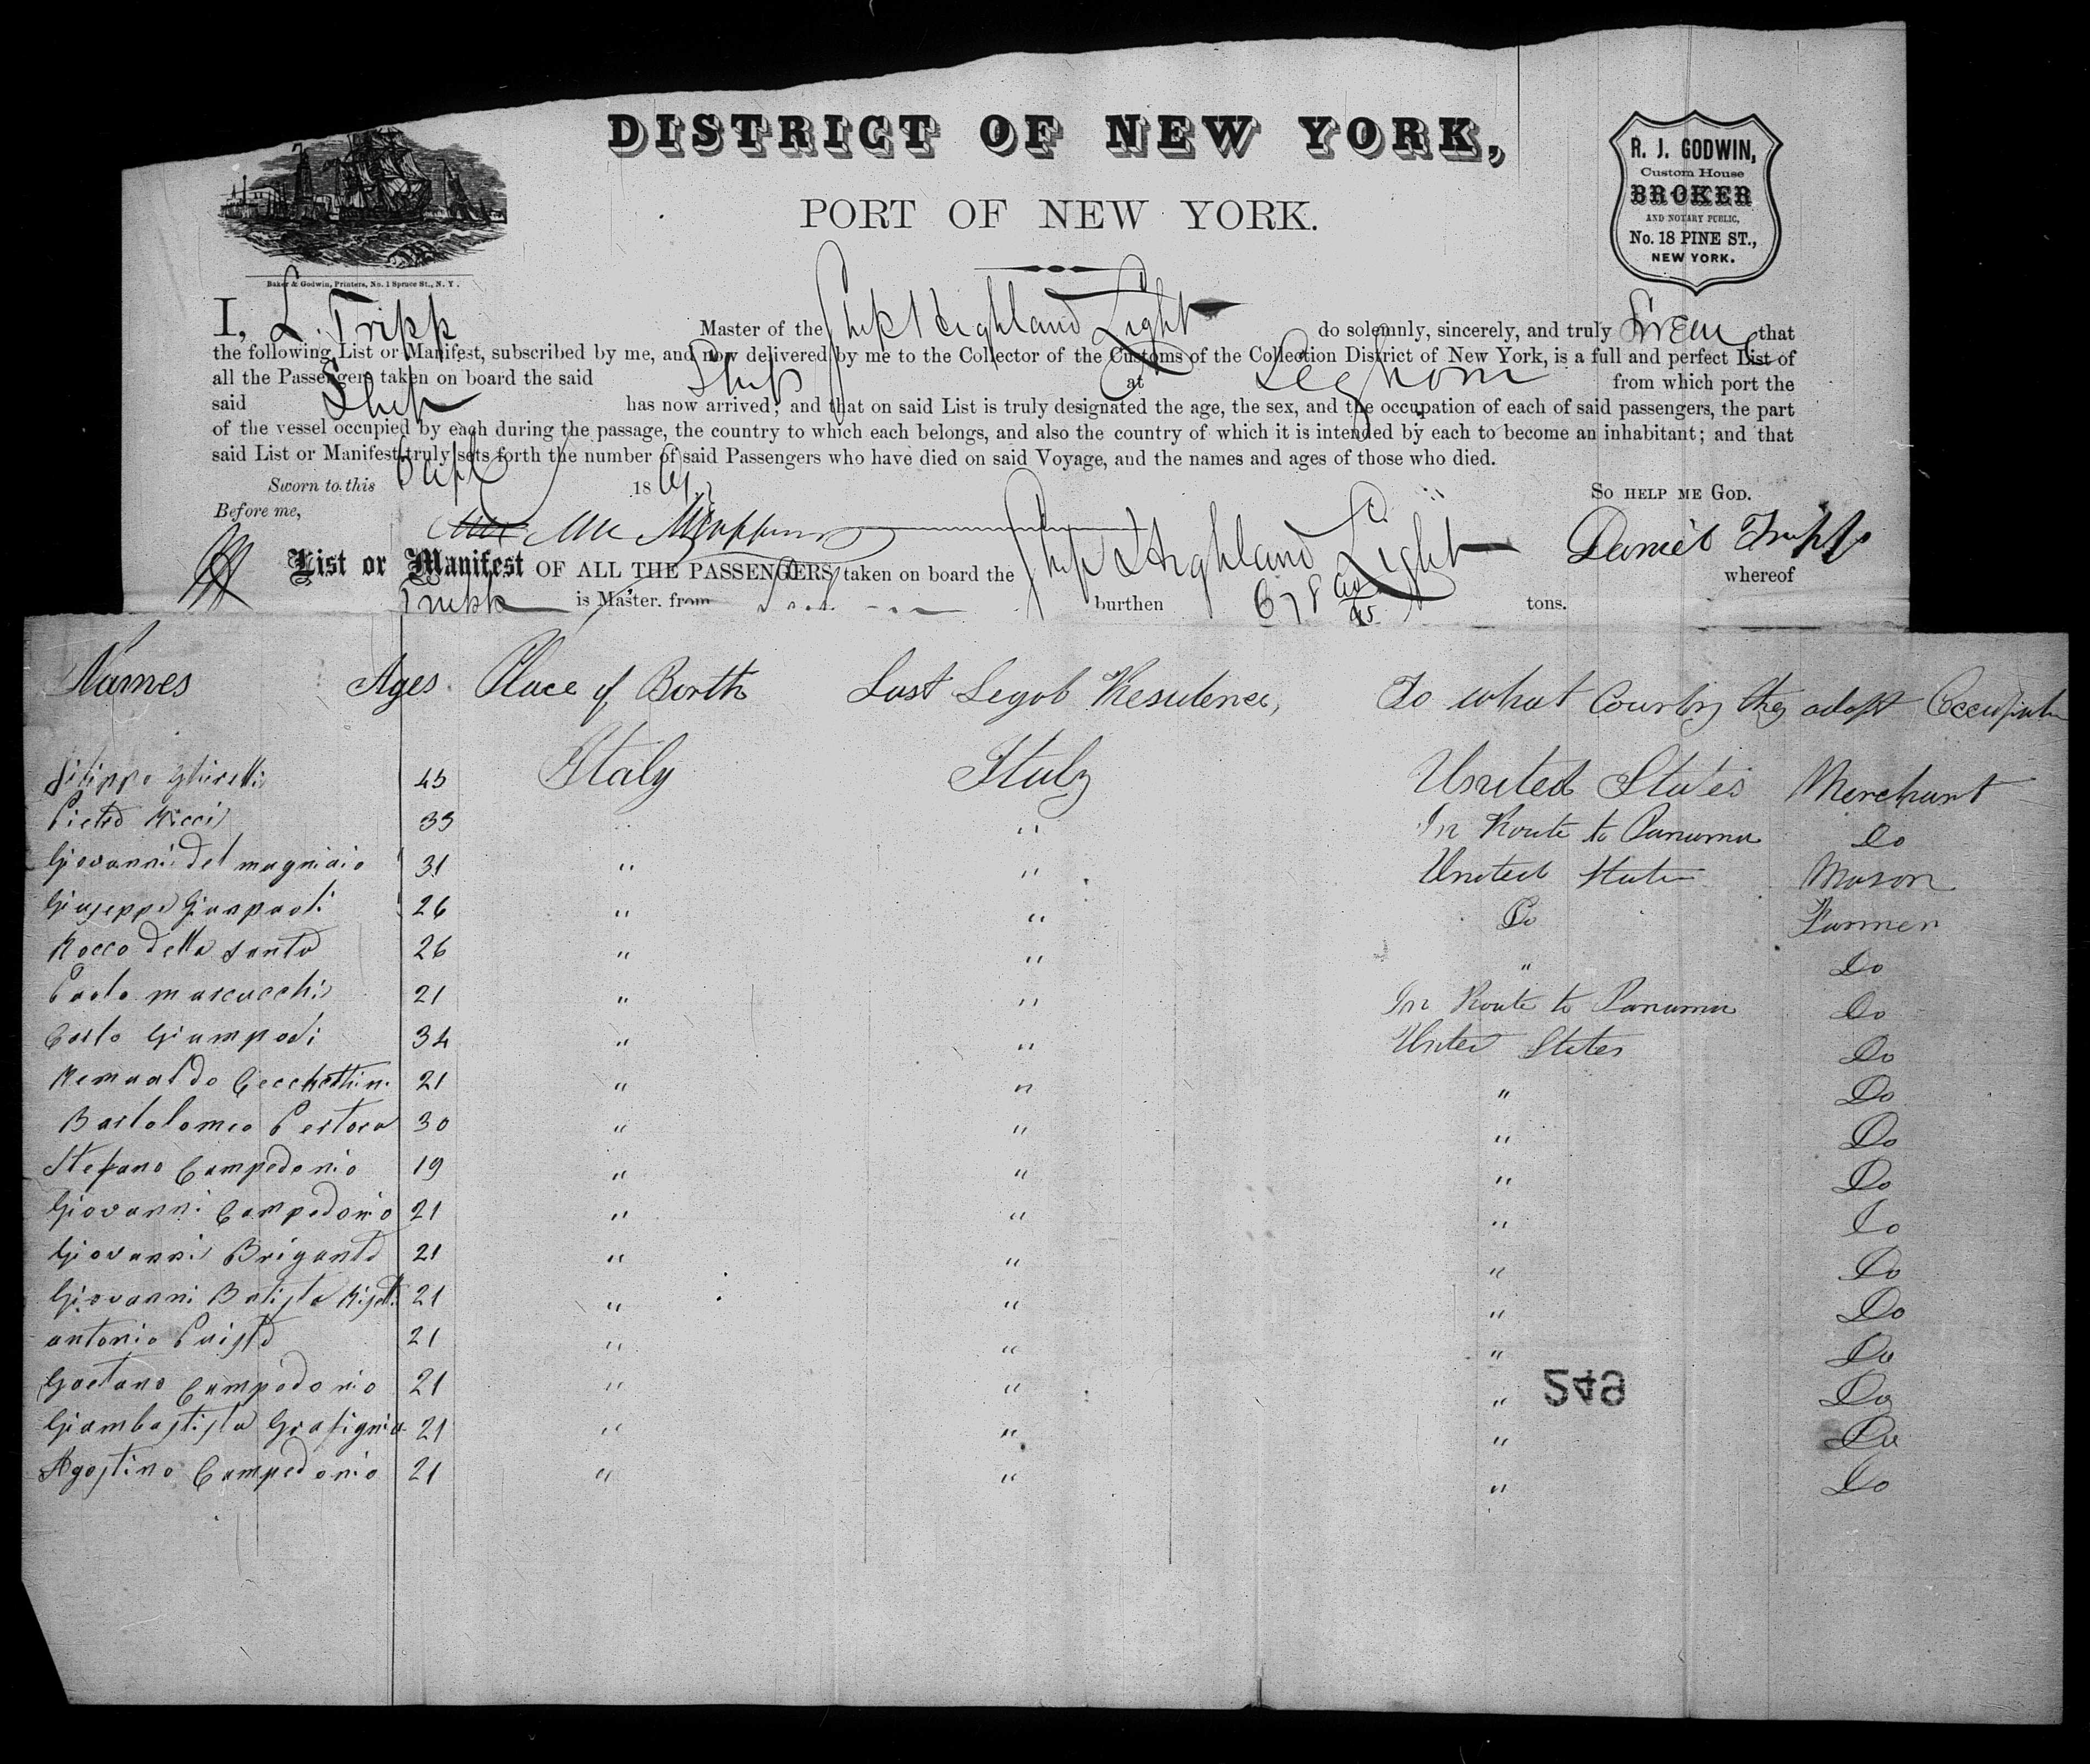 DISTRICT OF NEW YORK,
PORT OF NEW YORK.
R. J. GODWIN,
Custom House
BROKER
AND NOTARY PUBLIC,
No. 18 PINE ST.,
NEW YORK.
Baker & Godwin, Printers, No. 1 Spruce St., N. Y.
I, L. Tripp Master of the Ship Highland Light do solemnly, sincerely, and truly Swear that
the following List or Manifest, subscribed by me, and now delivered by me to the Collector of the Customs of the Collection District of New York, is a full and perfect List of
all the Passengers taken on board the said Ship at Leghorn from which port the
said Ship has now arrived; and that on said List is truly designated the age, the sex, and the occupation of each of said passengers, the part
of the vessel occupied by each during the passage, the country to which each belongs, and also the country of which it is intended by each to become an inhabitant; and that
said List or Manifest truly sets forth the number of said Passengers who have died on said Voyage, and the names and ages of those who died.
Sworn to this 18 So HELP ME GOD.
Before me,
Daniel Tripp
List or Manifest OF ALL THE PASSENGERS taken on board the Ship Highland Light whereof
Tripp is Master. from burthen 678 tons.
Names Ages Place of Birth Last Legob Residence, To what Country they adopt
Filippo Ghirelli 45 Italy Italy United States Merchant
Pietro Ricci 33 " In Route to Panama Do
Giovanni del magnaio 31 " " United States Mason
Giuseppe Gianpaoli 26 " " Do Farmer
Rocco della santa 26 " " " Do
Paolo marcucchi 21 " " In Route to Panama Do
Carlo Giampaoli 34 " " United States Do
Remualdo Cecchettini 21 " " " Do
Bartolomeo Pertora 30 " " " Do
Stefano Campedonio 19 " " " Do
Giovanni Campedonio 21 " " " Do
Giovanni Briganti 21 " " " Do
Giovanni Batista 21 " " " Do
antonio 21 " " " Do
Gaetano Campodonio 21 " " " Do
249
Giambastista Grafignia 21 " " " Do
Agostino Campedonio 21 " " " Do